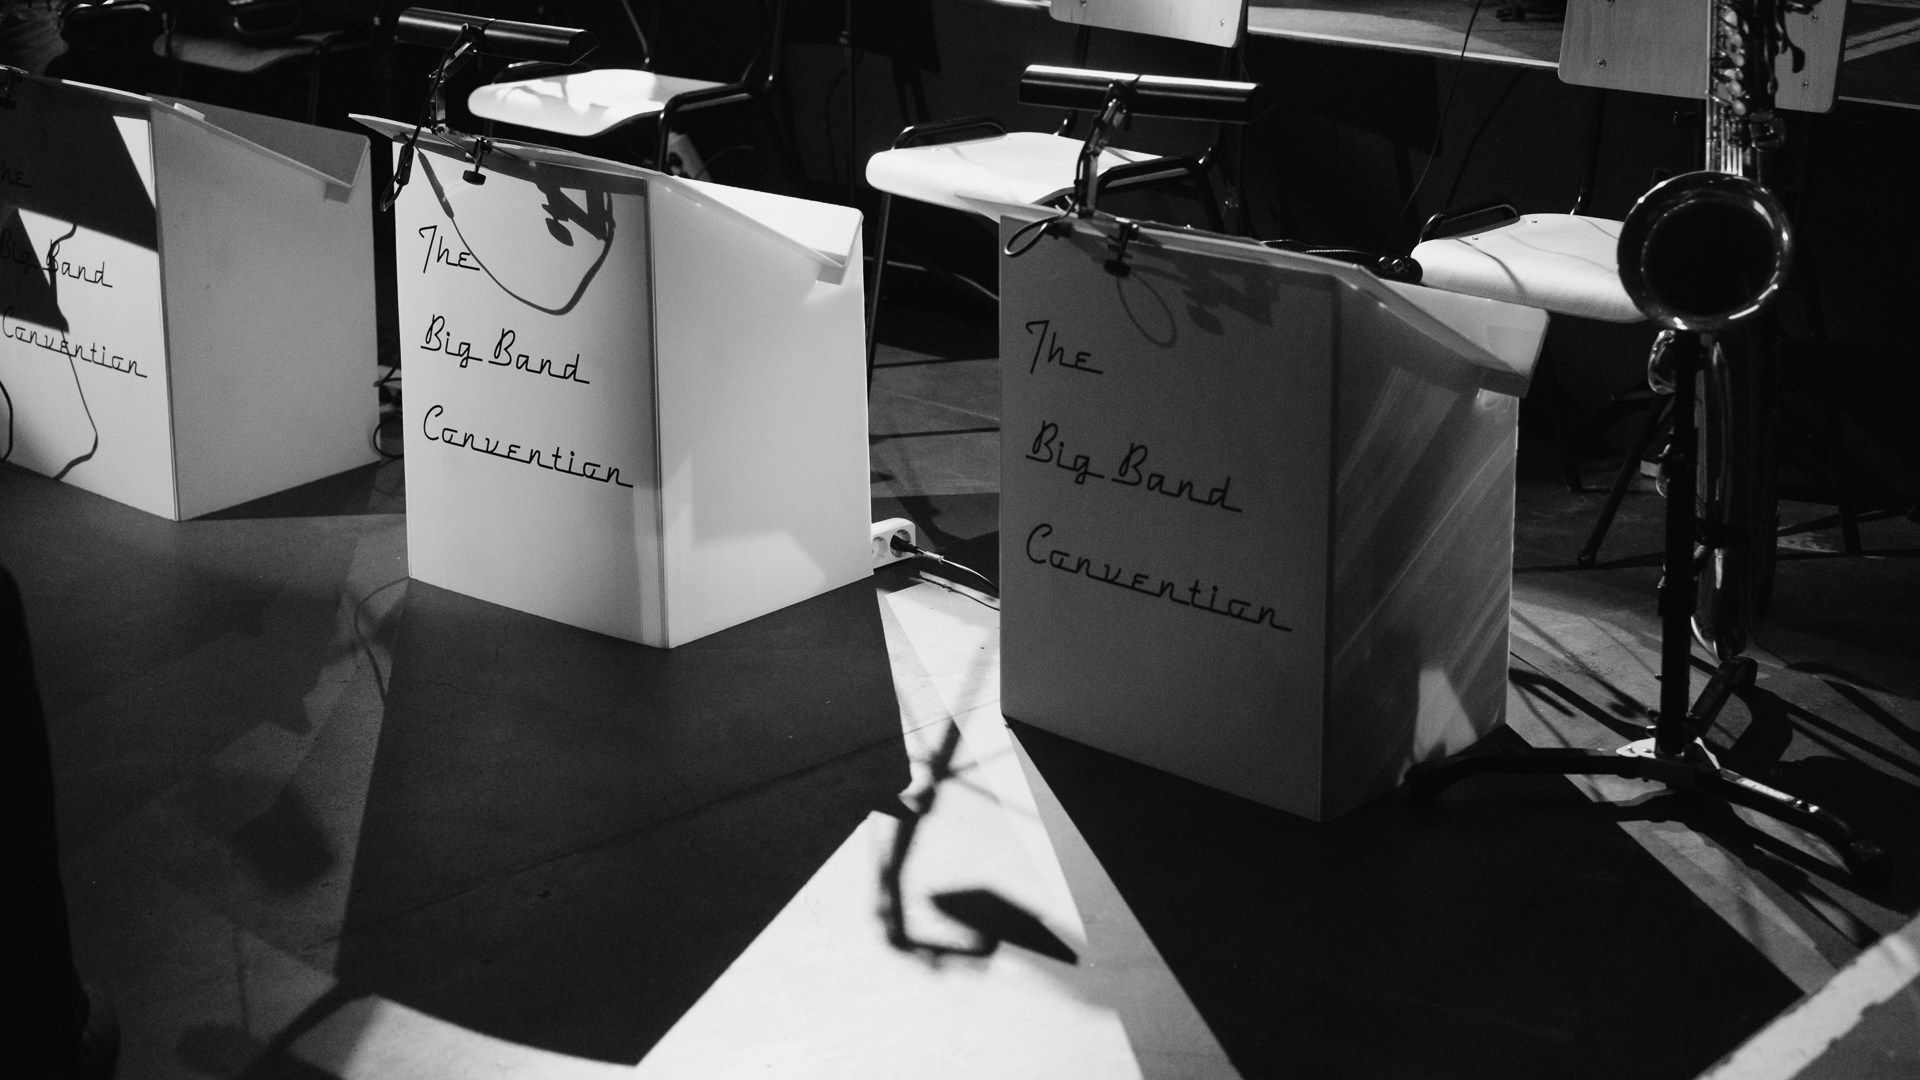 The
Big Band
Convention
The
Big Band
Convention
The
Big Band
Convention